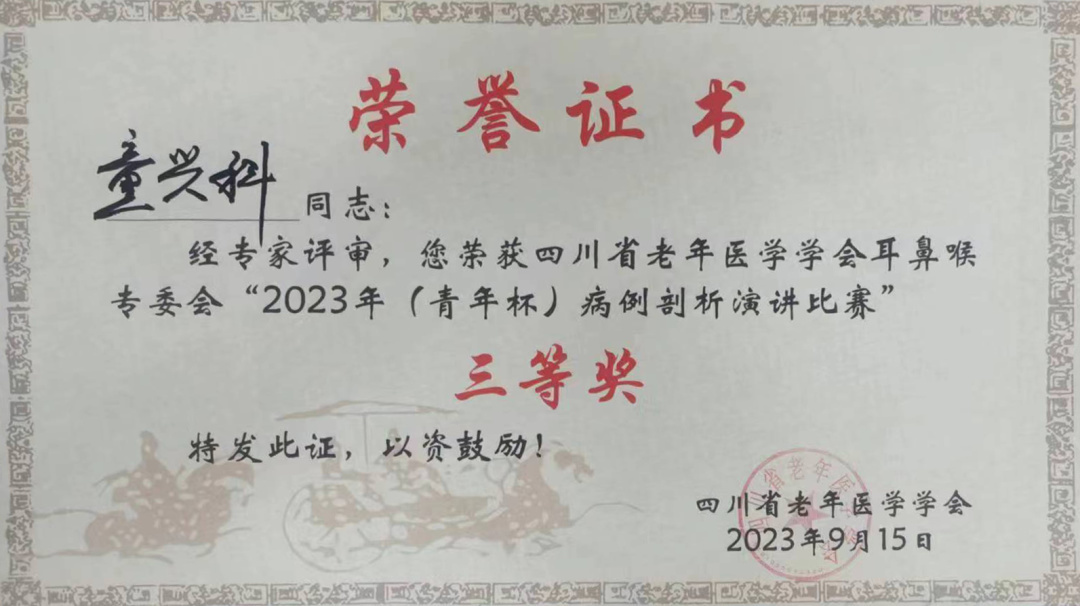 荣誉证书
童兴科同志：
经专家评审，您荣获四川省老年医学学会耳鼻喉
专委会“2023年（青年杯）病例剖析演讲比赛”
三等奖
特发此证，以资鼓励！
四川省老年医学学会
2023年9月15日